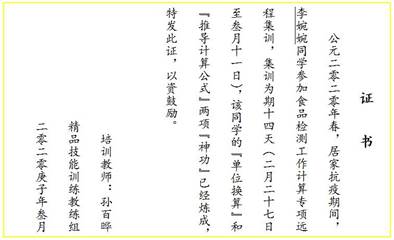 证书
公元二零二零年春，居家抗疫期间，
李婉婉同学参加食品检测工作计算专项远
程集训，集训为期十四天（二月二十七日
至叁月十一日），该同学的『单位换算』和
『推导计算公式』两项『神功』已经炼成，
特发此证，以资鼓励。
培训教师：孙百晔
精品技能训练教练组
二零二零庚子年叁月